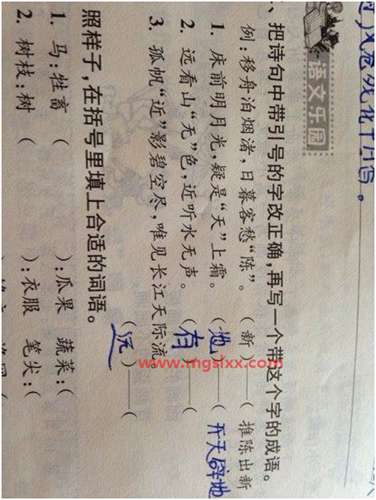 语文乐园
、把诗句中带引号的字改正确,再写一个带这个字的成语。
例:移舟泊烟渚,日暮客愁“陈”。(新 推陈出新
1. 床前明月光,疑是“天”上霜。(地)——(开天辟地
2. 远看山“无”色,近听水无声。(有)——(
3. 孤帆“近”影碧空尽,唯见长江天际流。(远)——(
照样子,在括号里填上合适的词语。
1. 马:牲畜 ( ):瓜果 蔬菜:(
2. 树枝:树 ( ):衣服 笔尖:(
www.mgslxx.com